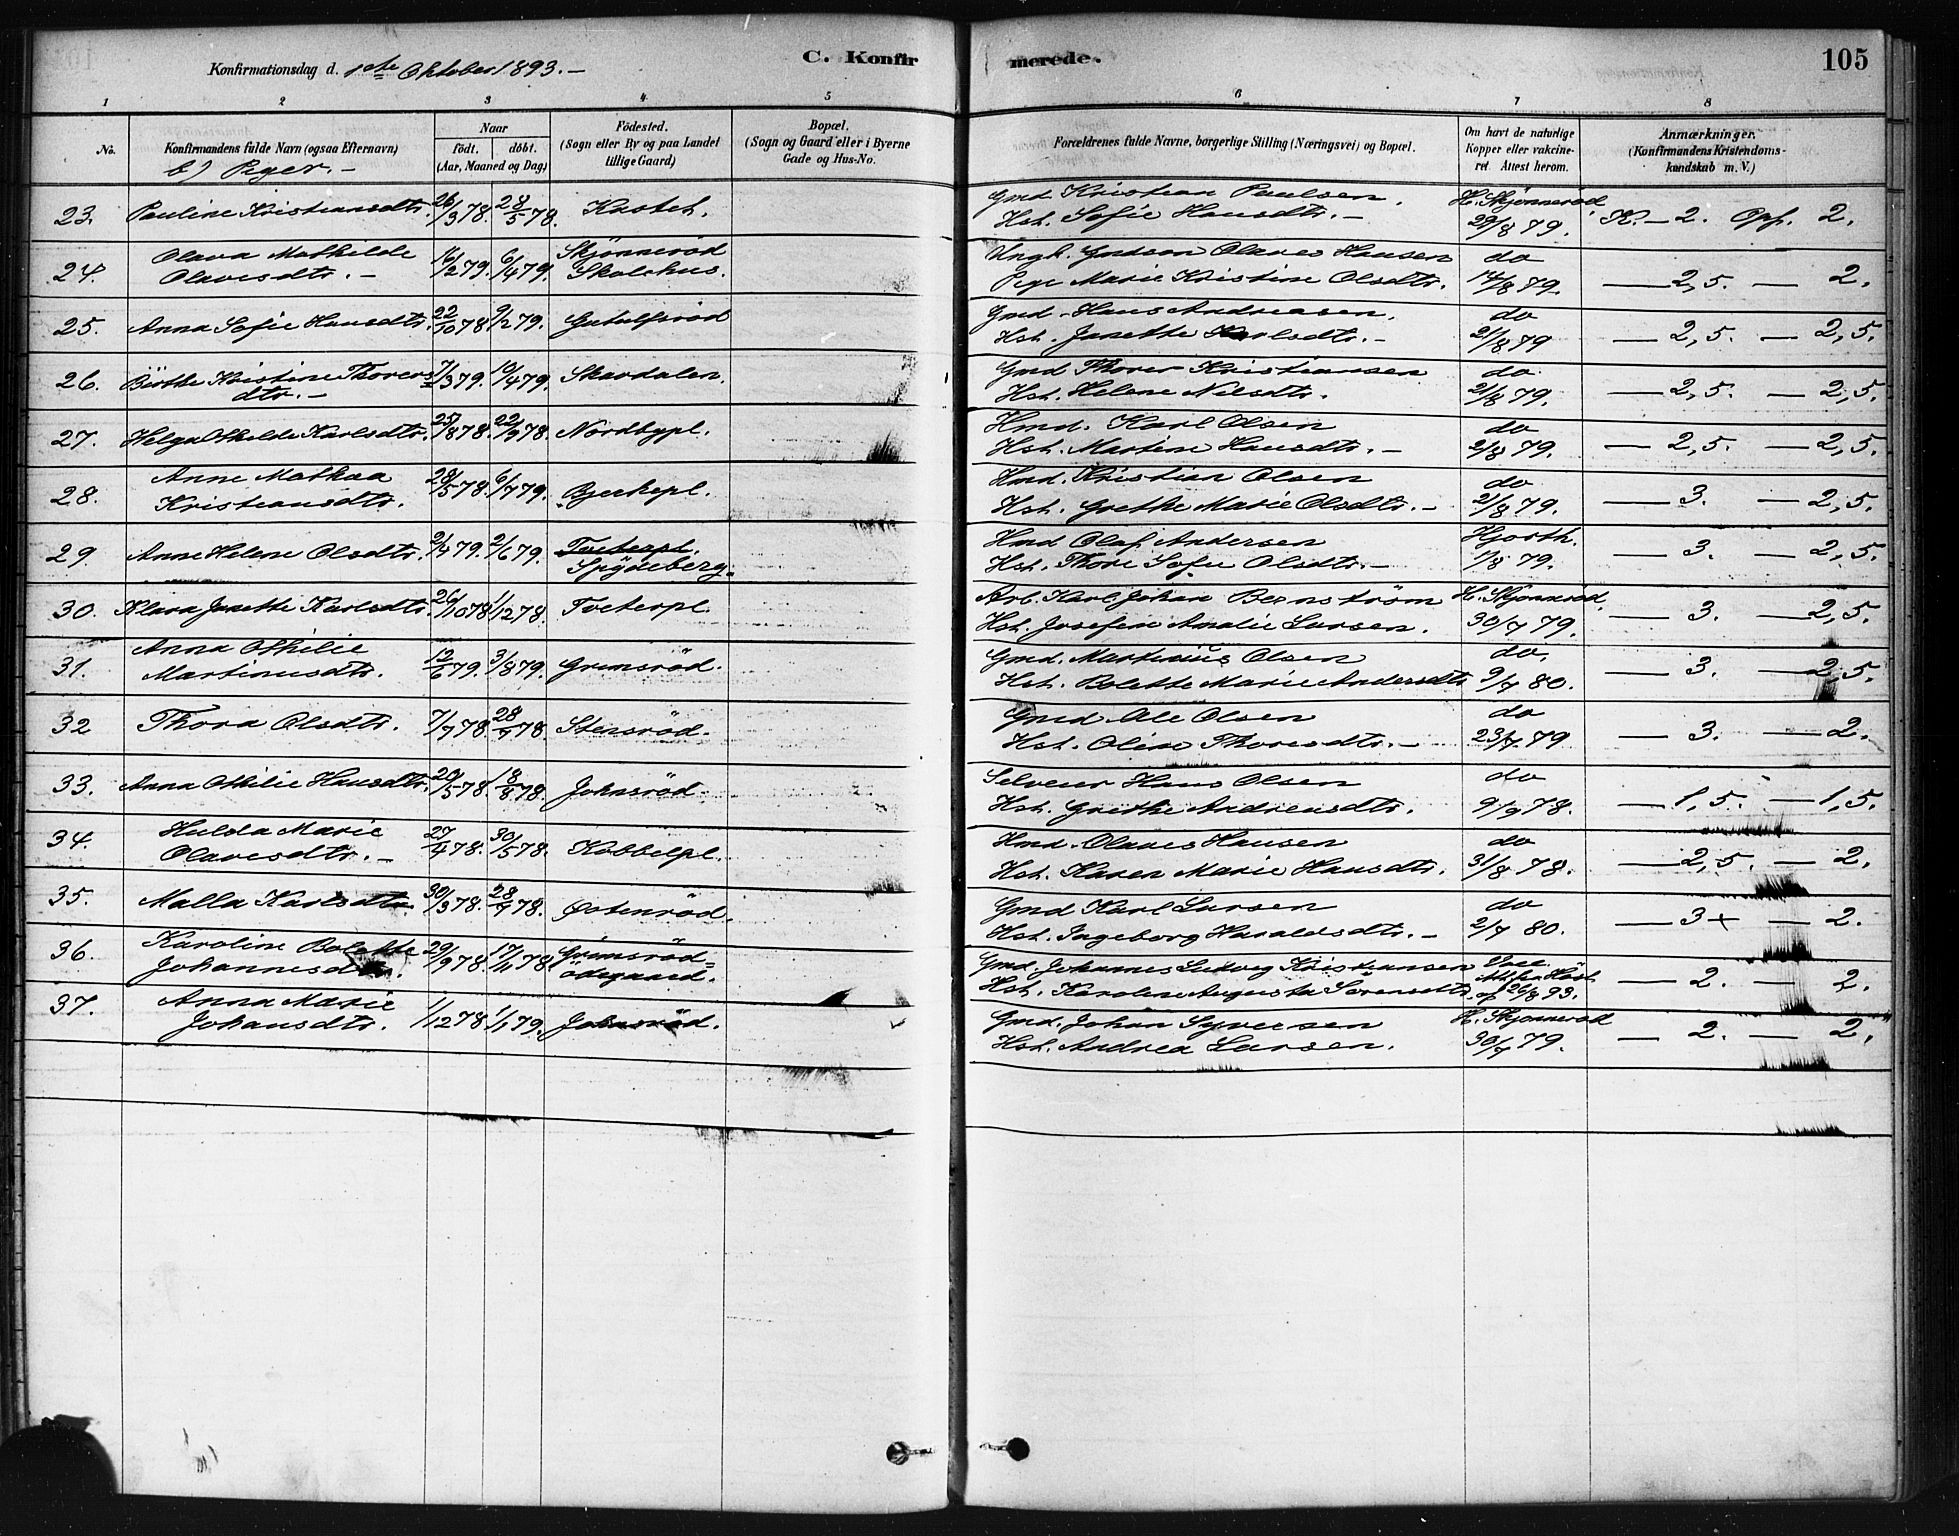 Konfirmationsdag d. 1ste Oktober 1893. –
C. Konfirmerede.
105
1 2 3 4 5 6 7 8
No.
Konfirmandens fulde Navn (ogsaa Efternavn)
b) Piger. –
Naar
Født. døbt.
(Aar, Maaned og Dag)
Fødested.
(Sogn eller By og paa Landet
tillige Gaard)
Bopæl.
(Sogn og Gaard eller i Byerne
Gade og Hus-No.
Forældrenes fulde Navne, borgerlige Stilling (Næringsvei) og Bopæl.
Om havt de naturlige
Kopper eller vakcine-
ret Attest herom.
Anmærkninger.
(Konfirmandens Kristendoms-
kundskab m. V.)
23. Pauline Kristiansdtr. 26/3 78. 28/5 78. Kastet. Gmd. Kristian Paulsen. H. Skjønnerød
Hst. Sofie Hansdtr. – 29/8 79. K. – 2. Opf. 2.
24. Olava Mathilde 16/2 79. 6/4 79. Skjønnerød Ungk. Olaves Hansen do
Olavesdtr. – Skolehus. Pige Marie Kristine Olsdtr. 14/8 79. — 2,5. — 2.
25. Anna Sofie Hansdtr. 22/10 78. 9/2 79. Gutulfsrød Gmd. Hans Andreasen. do
Hst. Janette Karlsdtr. – 21/8 79 — 2,5. — 2,5.
26. Birthe Kristine Thorers 7/3 79. 19/4 79. Skovdalen. Gmd Thorer Kristiansen do
dtr. – Hst. Helene Nilsdtr. 21/8 79. — 2,5. — 2,5.
27. Helga Othilde Karlsdtr. 25/8 78. 22/9 78. Nordbypl. Hmd. Karl Olsen do
Hst. Martine Hansdtr. – 2/8 79. — 2,5. — 2,5.
28. Anne Mathea 28/5 78. 6/7 79. Bjerkepl. Hmd. Kristian Olsen do
Kristiansdtr. Hst. Grethe Marie Olsdtr. – 21/8 79. — 3. — 2,5.
29. Anne Helene Olsdtr. 2/4 79. 2/6 79. Tveterpl. Hmd Olaf Andersen Hjorth.
Spydeberg. Hst. Thore Sofie Olsdtr. – 1/8 79. — 3. — 2,5.
30. Klara Janette Karlsdtr. 26/10 78 1/12 78. Tveterpl. Arb. Karl Johan Bernstrøm H. Skjønnerød.
Hst. Josefine Amalie Larsen. 30/7 79. — 3. — 2,5.
31. Anna Othilie 12/6 79. 3/8 79. Grimsrød. Gmd. Martinius Olsen do.
Martinusdtr. Hst. Bolette Marie Andersdtr 9/7 80. — 3. — 2,5.
32 Thora Olsdtr. 7/7 78. 28/7 78. Stensrød. Gmd Ole Olsen do
Hst. Oline Thoresdtr. – 23/7 79 — 3. — 2.
33. Anna Othilie Hansdtr. 20/5 78. 18/8 78. Johnsrød. Selveier Hans Olsen do
Hst. Grethe Andreasdtr. 9/9 78. — 1,5. — 1,5.
34. Hulda Marie 27/4 78. 30/5 78. Kobbelpl. Hmd. Olaves Hansen do
Olavesdtr. – Hst. Karen Marie Hansdtr. 31/8 78. — 2,5. — 2.
35. Malla Karlsdtr 30/3 78. 28/7 78. Østenrød. Gmd Karl Larsen do
Hst. Ingeborg Haraldsdtr. – 2/7 80. — 3+ — 2.
36. Karoline Bolette 29/9 78. 17/11 78 Grimsrød- Gmd. Johannes Ludvig Kristiansen
Johannesdtr. ødegaard. Hst. Karoline Augusta Sørensdtr. 26/8 93. — 2. — 2.
37. Anna Marie 1/12 78. 1/1 79. Johnsrød. Gmd. Johan Syversen H. Skjønnerød
Johansdtr. Hst. Andrea Larsen. 30/7 79. — 2. — 2.